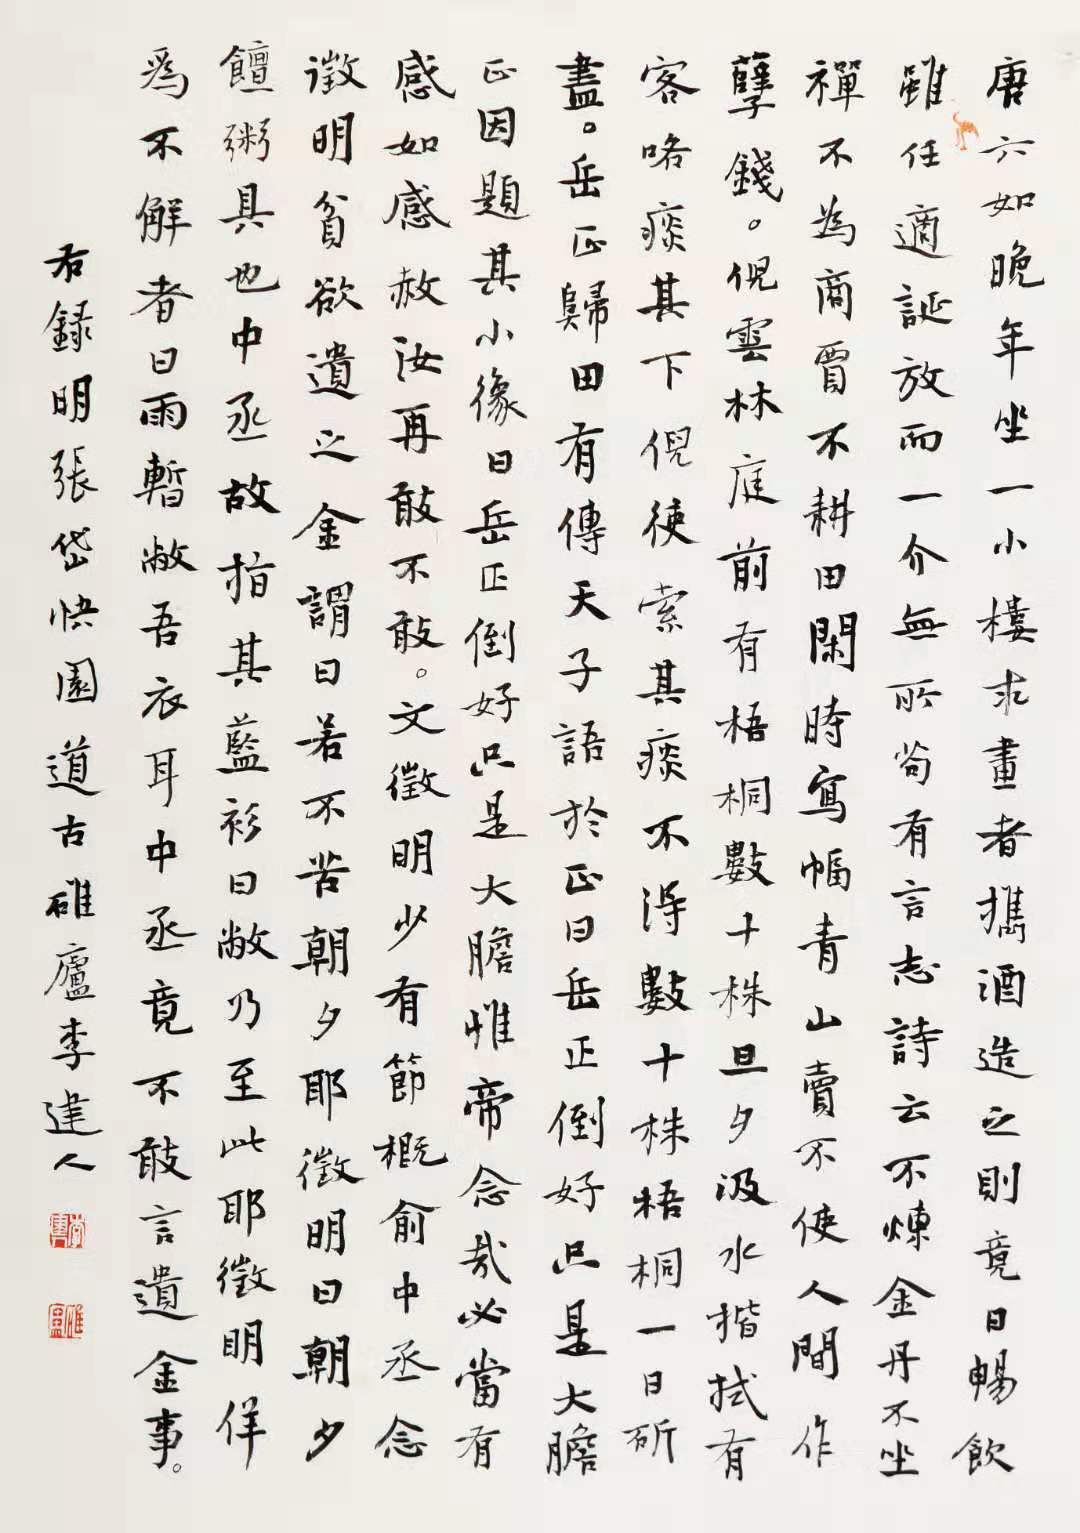 唐六如晚年坐一小樓求畫者攜酒造之則竟日暢飲
雖任適誕放而一介無所苟有言志詩云不煉金丹不坐
禪不為商賈不耕田閑時寫幅青山賣不使人間作
孽錢。倪雲林庭前有梧桐數十株旦夕汲水揩拭有
客咯痰其下倪使索其痰不得數十株梧桐一日斫
盡。岳正歸田有傳天子語於正曰岳正倒好只是大膽
正因題其小像曰岳正倒好只是大膽惟帝念哉必當有
感如感赦汝再敢不敢。文徵明少有節概俞中丞念
徵明貧欲遺之金謂曰若不苦朝夕耶徵明曰朝夕
饘粥具也中丞故指其藍衫曰敝乃至此耶徵明佯
為不解者曰雨暫敝吾衣耳中丞竟不敢言遺金事。
右錄明張岱快園道古碓廬李建人